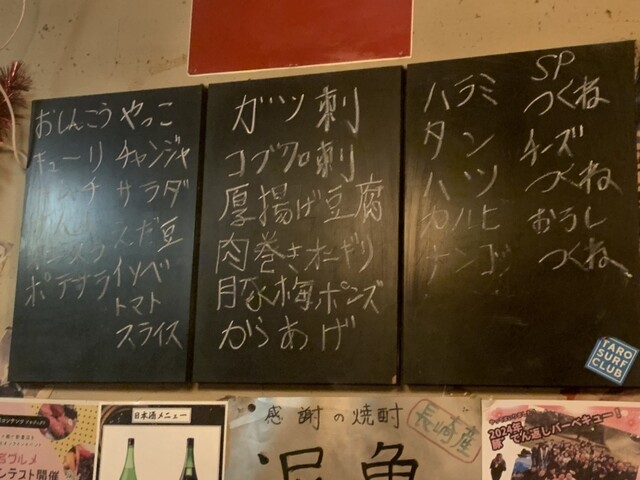 おしんこう やっこ
キューリ チャンジャ
サラダ
だ豆
ポテサラ イソベ
トマト
スライス
ガツ刺
コブクロ刺
厚揚げ豆腐
肉巻きオニギリ
豚梅ポンズ
からあげ
ハラミ
タン
ハツ
カルビ
ナンコツ
SP
つくね
チーズ
つくね
おろし
つくね
TARO
SURF
CLUB
日本酒メニュー
感謝の焼酎
長崎産
2024年
でん返しバーベキュー！
ンテスト開催